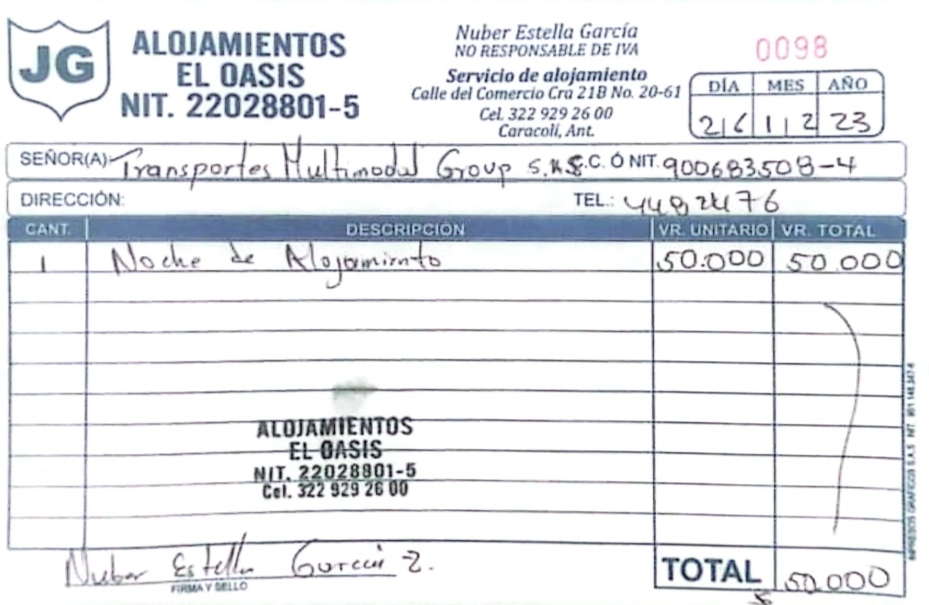 JG
ALOJAMIENTOS
EL OASIS
NIT. 22028801-5
Nuber Estella García
NO RESPONSABLE DE IVA
Servicio de alojamiento
Calle del Comercio Cra 21B No. 20-61
Cel. 322 929 26 00
Caracolí, Ant.
0098
DÍA MES AÑO
26 12 23
SEÑOR(A): Transportes Multimodal Group S.A.S. C. Ó NIT. 900683508-4
DIRECCIÓN: TEL.:
CANT. DESCRIPCIÓN VR. UNITARIO VR. TOTAL
1 Noche de Alojamiento 50.000 50.000
ALOJAMIENTOS
EL OASIS
NIT. 22028801-5
Cel. 322 929 26 00
Nuber Estella García Z.
FIRMA Y SELLO
TOTAL 50.000
IMPRESOS GRAFICOS S.A.S NIT